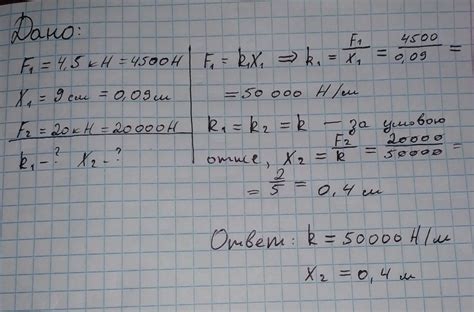 Дано:
F₁ = 4,5 кН = 4500 Н
X₁ = 9 см = 0,09 м
F₂ = 20 кН = 20000 Н
k₁ - ? X₂ - ?
F₁ = k₁X₁ ⇒ k₁ = F₁/X₁ = 4500/0,09 =
= 50 000 Н/м
k₁ = k₂ = k — за умовою
отже, X₂ = F₂/k = 20000/50000 =
= 2/5 = 0,4 м
Ответ: k = 50000 Н/м
X₂ = 0,4 м